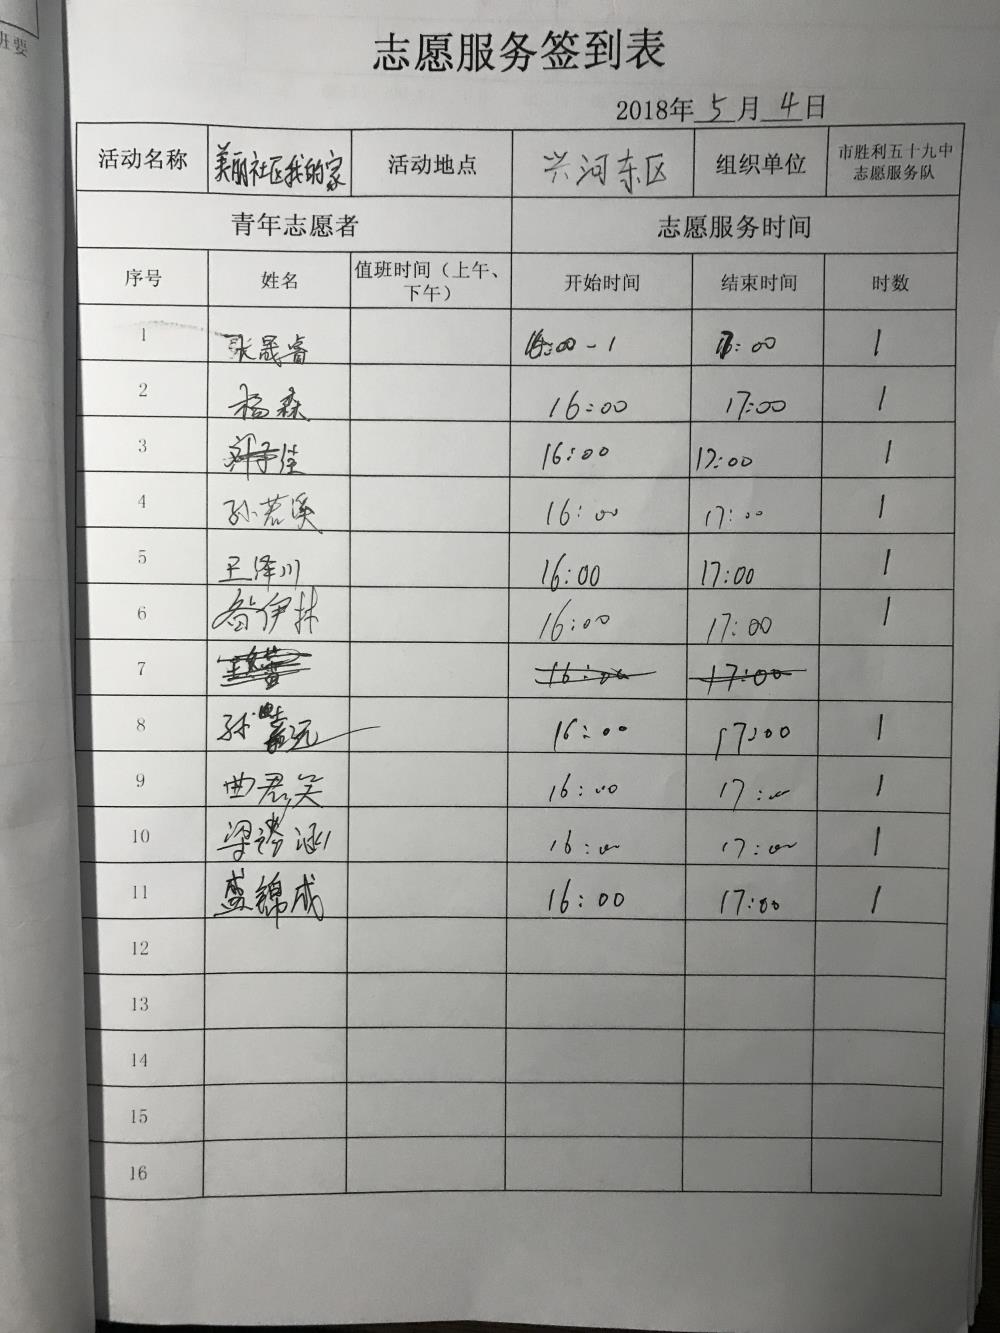 班要
志愿服务签到表
2018年5月4日
活动名称 美丽社区我的家 活动地点 兴河东区 组织单位 市胜利五十九中志愿服务队
青年志愿者 志愿服务时间
序号 姓名 值班时间（上午、下午） 开始时间 结束时间 时数
1 张晟睿 :00-1 :00 1
2 杨森 16:00 17:00 1
3 佳 16:00 17:00 1
4 孙若溪 16:00 17:00 1
5 王泽川 16:00 17:00 1
6 伊林 16:00 17:00 1
7 16:00 17:00
8 孙 远 16:00 17:00 1
9 曲君笑 16:00 17:00 1
10 梁涵 16:00 17:00 1
11 盛锦成 16:00 17:00 1
12
13
14
15
16